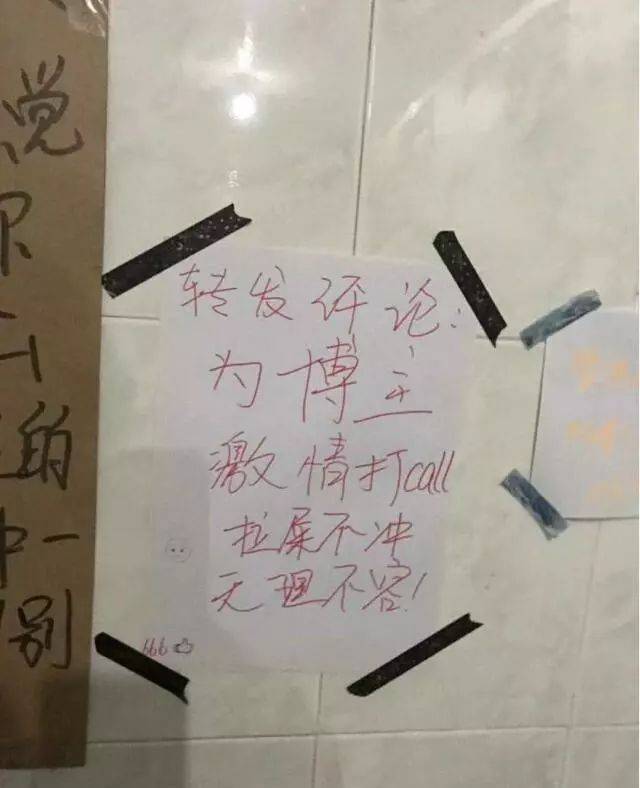 觉
的
中一
别
转发评论:
为博主
激情打call
拉屎不冲
无理不容!
666